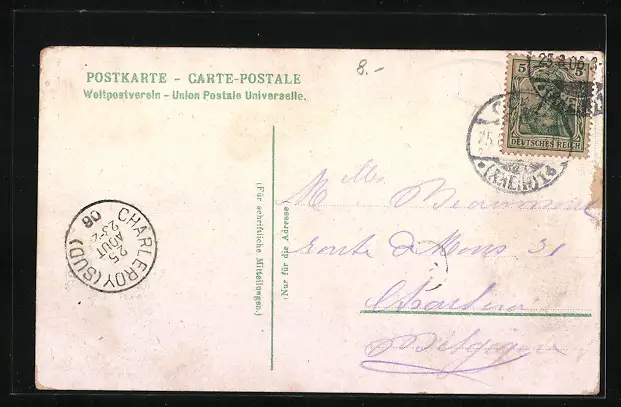 8.-
POSTKARTE - CARTE-POSTALE
Weltpostverein - Union Postale Universelle.
5 5
DEUTSCHES REICH
25.8.06.
(RHEIN)
(Für schriftliche Mitteilungen.)
(Nur für die Adresse)
CHARLEROY (SUD)
25
AOUT
06
Melles
route de Mons 31
Charleroi
Belgique